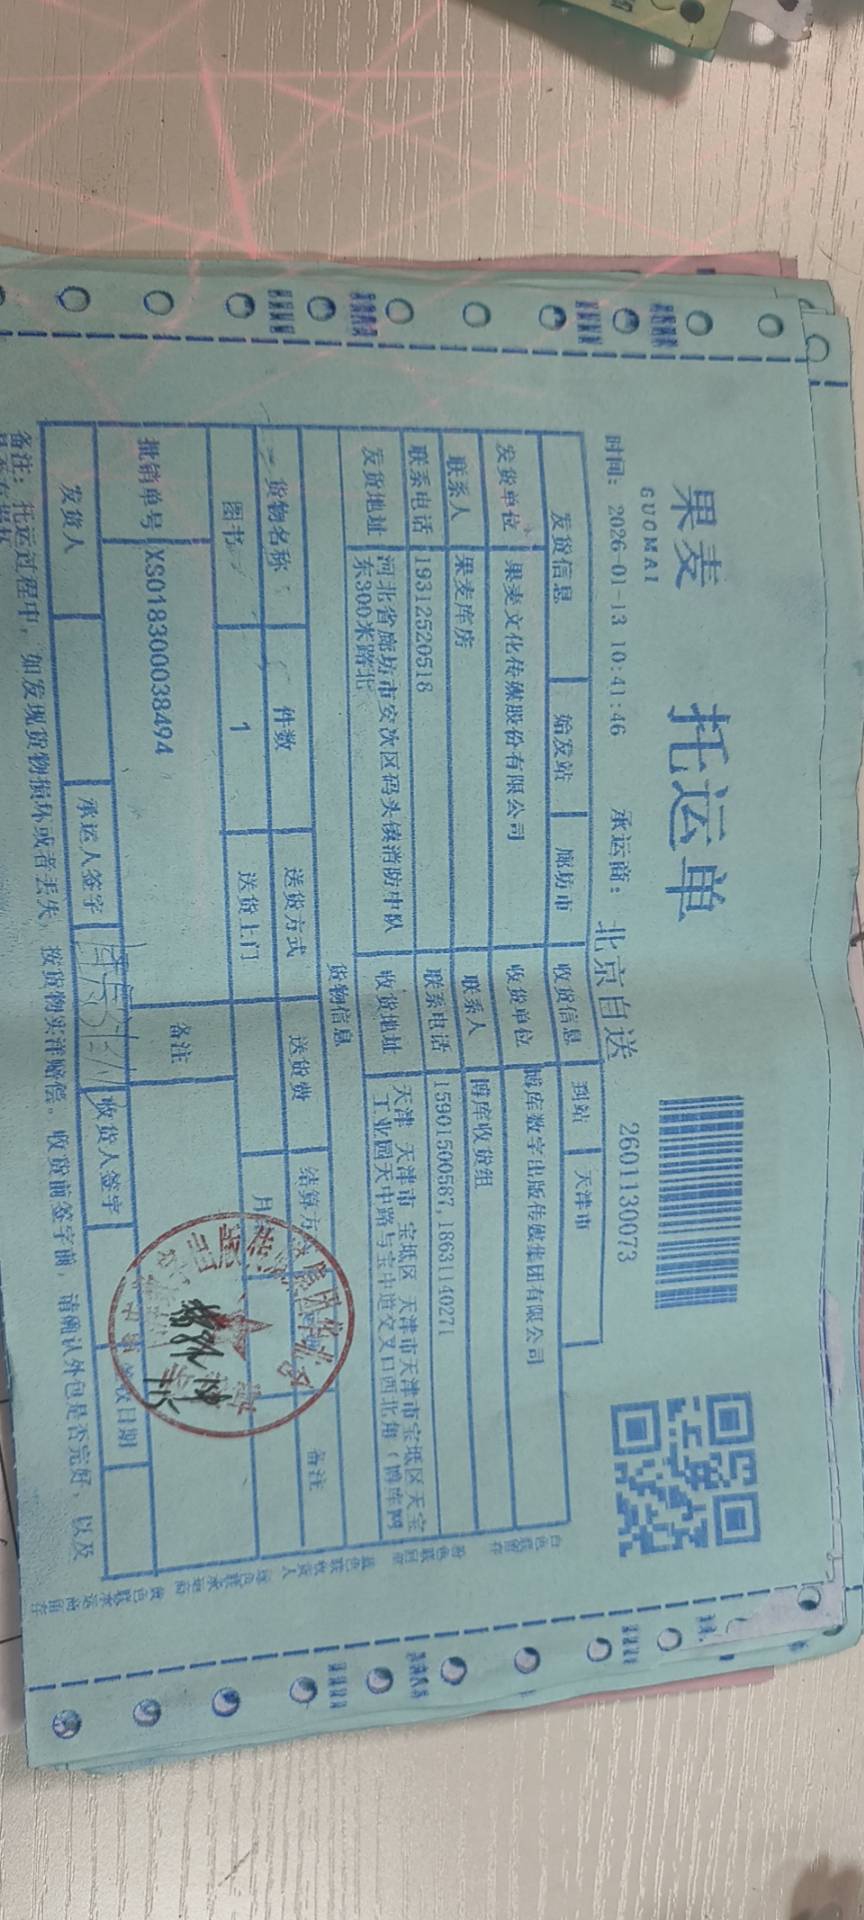 果麦 托运单
GUOMAI
2601130073
时间: 2026-01-13 10:41:46 承运商: 北京自送
发货信息 始发站 廊坊市 收货信息 到站 天津市
发货单位 果麦文化传媒股份有限公司 收货单位 博库数字出版传媒集团有限公司
联系人 果麦库房 联系人 博库收货组
联系电话 19312520518 联系电话 15901500587, 18631140271
发货地址 河北省廊坊市安次区码头镇消防中队 收货地址 天津 天津市 宝坻区 天津市天津市宝坻区天宝
东300米路北 工业园天中路与宝中道交叉口西北角（博库网
货物信息
货物名称 件数 送货方式 送货费 结算方 备注
图书 1 送货上门 月
批销单号 XS018300038494 备注
发货人 承运人签字 收货人签字 签收日期
备注: 托运过程中, 如发现货物损坏或者丢失, 按货物实洋赔偿。收货前签字前, 请确认外包是否完好, 以及